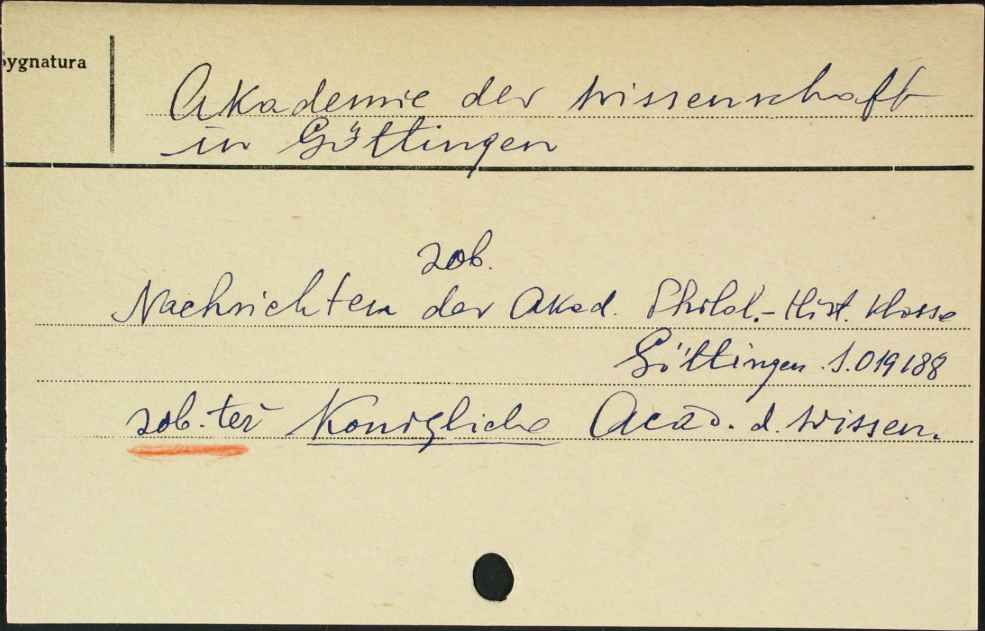 Sygnatura
Akademie der Wissenschaft
in Göttingen
zob.
Nachrichten der Akad. Philol.-Hist. Klasse
Göttingen S.019188
zob. też Königliche Acad. d. Wissen.